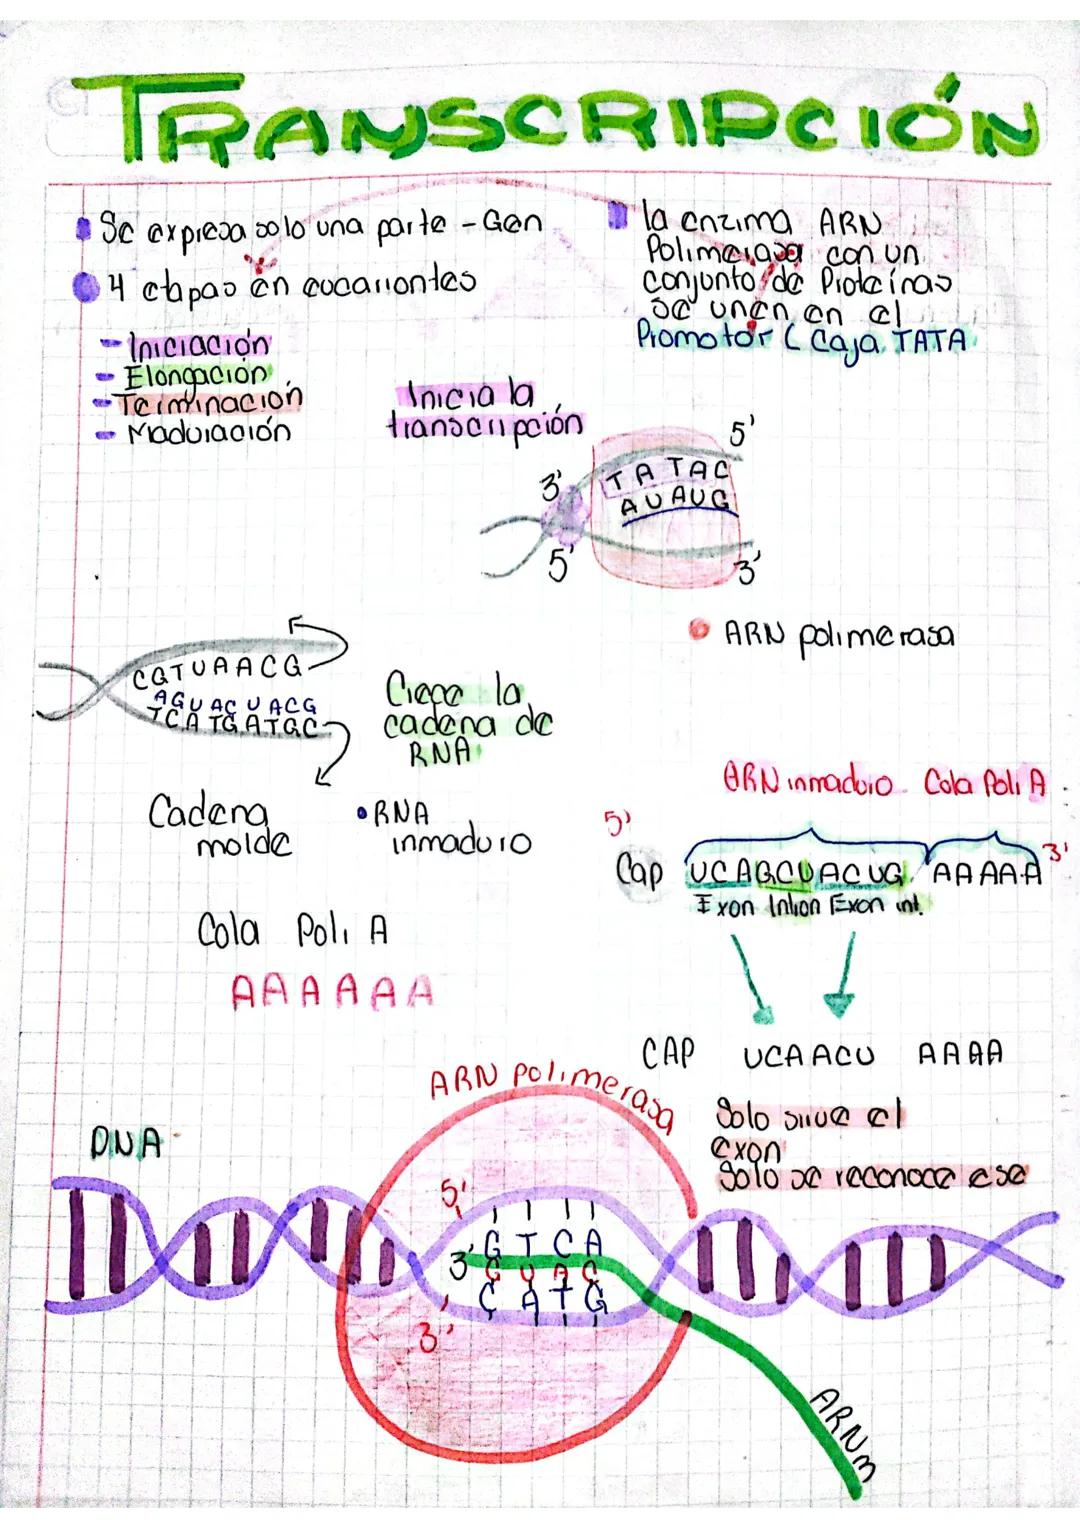 TRANSCRIPCIÓN
Se expresa solo una parte - Gen
4 etapas en eucariontes
- Iniciación
- Elongación
- Terminación
- Maduración
la enzima ARN
Polimerasa con un
conjunto de Proteínas
se unen en el
Promotor ( Caja TATA
Inicia la
transcripción
5'
3'
TATAC
AUAUG
5'
3'
ARN polimerasa
CGTUAACG
AGUACUACG
TCATGATGC
Crece la
cadena de
RNA
Cadena
molde
• RNA
inmaduro
Cola Poli A
AAAAAA
ARN inmaduro Cola Poli A
5'
3'
Cap UCAGCUACUG AAAAA
Exon Intron Exon int.
CAP UCAACU AAAA
Solo sirve el
exon
Solo se reconoce ese
ARN polimerasa
DNA
5'
GTCA
3'
CUAG
CATG
3'
ARNm